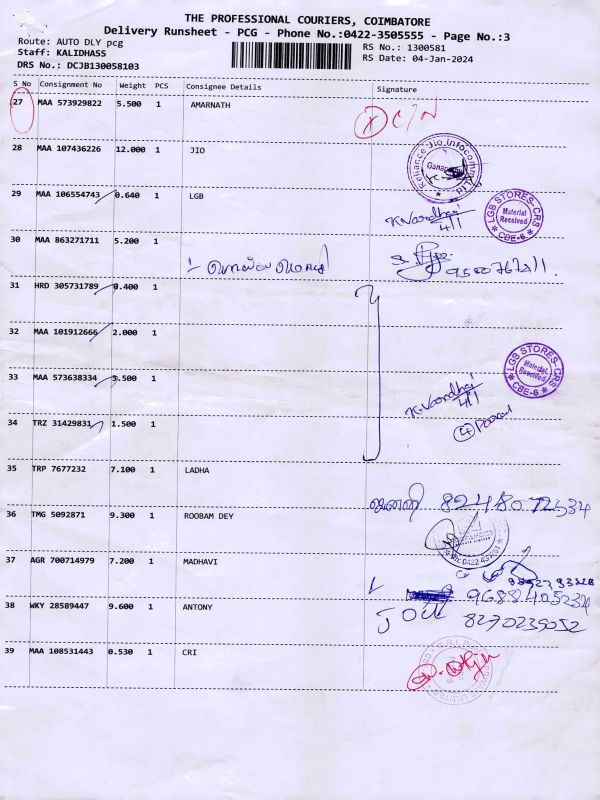 THE PROFESSIONAL COURIERS, COIMBATORE
Delivery Runsheet - PCG - Phone No.:0422-3505555 - Page No.:3
Route: AUTO DLY pcg
RS No.: 1300581
Staff: KALIDHASS
RS Date: 04-Jan-2024
DRS No.: DCJB130058103
S No Consignment No Weight PCS Consignee Details Signature
27 MAA 573929822 5.500 1 AMARNATH
28 MAA 107436226 12.000 1 JIO
Reliance Jio Infocomm Ltd
29 MAA 106554743 0.640 1 LGB
K.Vaordhai
4/1
LGB STORES- CRS
Material
Received
CBE-6
30 MAA 863271711 5.200 1
31 HRD 305731789 0.400 1
32 MAA 101912666 2.000 1
33 MAA 573638334 3.500 1
K.Vaordhai
4/1
LGB STORES- CRS
Material
Received
CBE-6
34 TRZ 31429831 1.500 1
35 TRP 7677232 7.100 1 LADHA
ஜனனி
36 TMG 5092871 9.300 1 ROOBAM DEY
37 AGR 700714979 7.200 1 MADHAVI
9688405234
38 WKY 28589447 9.600 1 ANTONY
8270239052
39 MAA 108531443 0.530 1 CRI